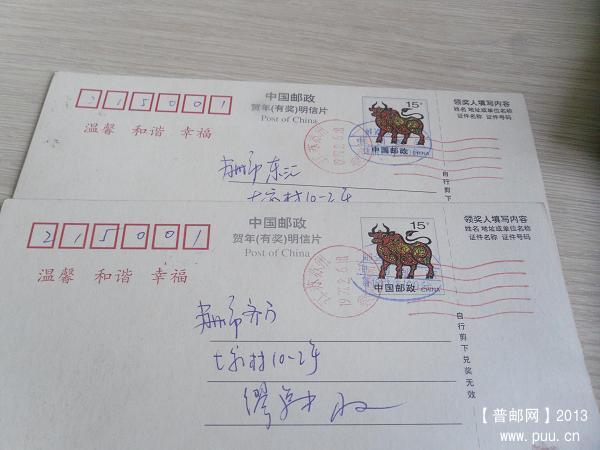 215001
中国邮政
贺年(有奖)明信片
Post of China
15分
中国邮政 CHINA
领奖人填写内容
姓名 地址或单位名称
证件名称 证件号码
温馨 和谐 幸福
苏州市东
村10-2号
自行剪下
215001
中国邮政
贺年(有奖)明信片
Post of China
15分
中国邮政 CHINA
领奖人填写内容
姓名 地址或单位名称
证件名称 证件号码
温馨 和谐 幸福
苏州市
村10-2号
自行剪下兑奖无效
【普邮网】2013
www.puu.cn